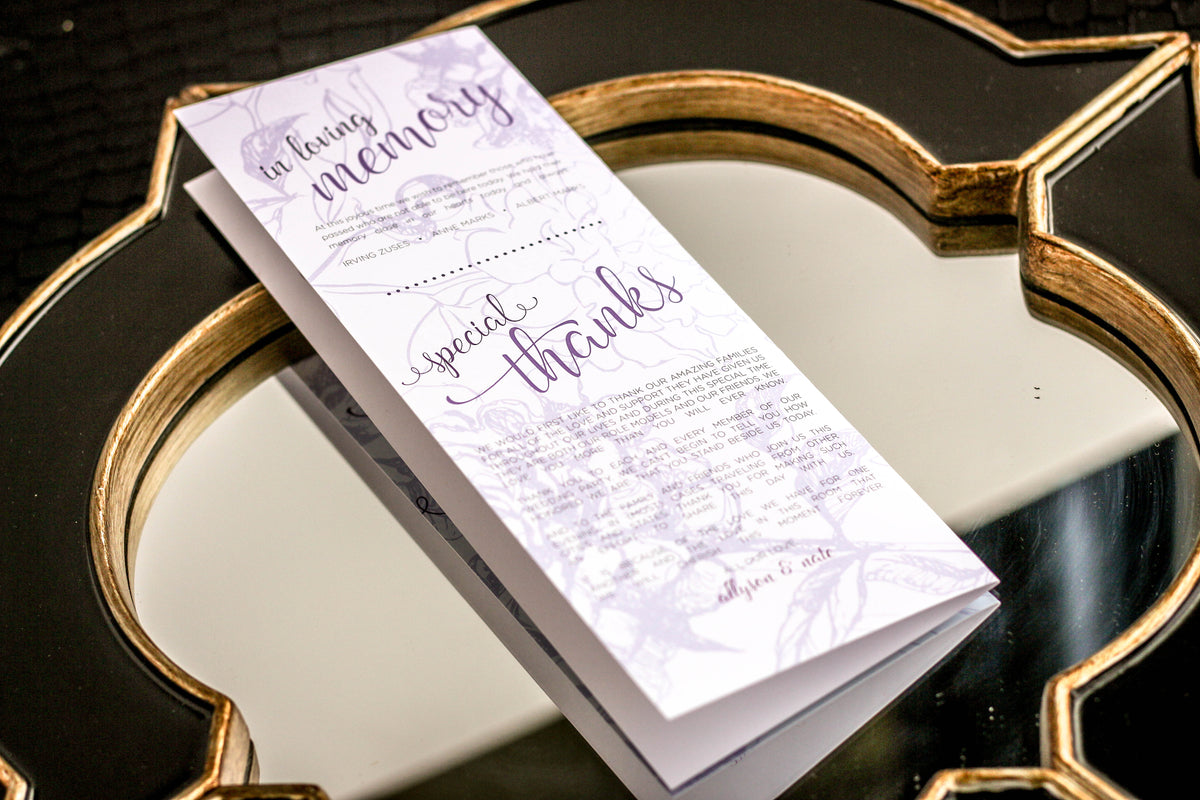 in loving
memory
At this joyous time we wish to remember those who have
passed who are not able to be here today. We hold their
memory close in our hearts today and always.
IRVING ZUSES • ANNE MARKS • ALBERT MARKS
special
thanks
WE WOULD FIRST LIKE TO THANK OUR AMAZING FAMILIES
FOR ALL OF THE LOVE AND SUPPORT THEY HAVE GIVEN US
THROUGHOUT OUR LIVES AND DURING THIS SPECIAL TIME.
YOU ARE BOTH OUR ROLE MODELS AND OUR FRIENDS. WE
LOVE YOU MORE THAN YOU WILL EVER KNOW.
THANK YOU TO EACH AND EVERY MEMBER OF OUR
WEDDING PARTY. WE CAN'T BEGIN TO TELL YOU HOW
HONORED WE ARE THAT YOU STAND BESIDE US TODAY.
AND TO THE FAMILY AND FRIENDS WHO JOIN US THIS
EVENING AND IN MOST CASES TRAVELING FROM OTHER
STATES, THANK YOU FOR MAKING SUCH
TO SHARE THIS DAY WITH US.
OF THE LOVE WE HAVE FOR ONE
AND THE LOVE IN THIS ROOM THAT
WILL CHERISH THIS MOMENT FOREVER.
ALL OUR LOVE
allyson & nate